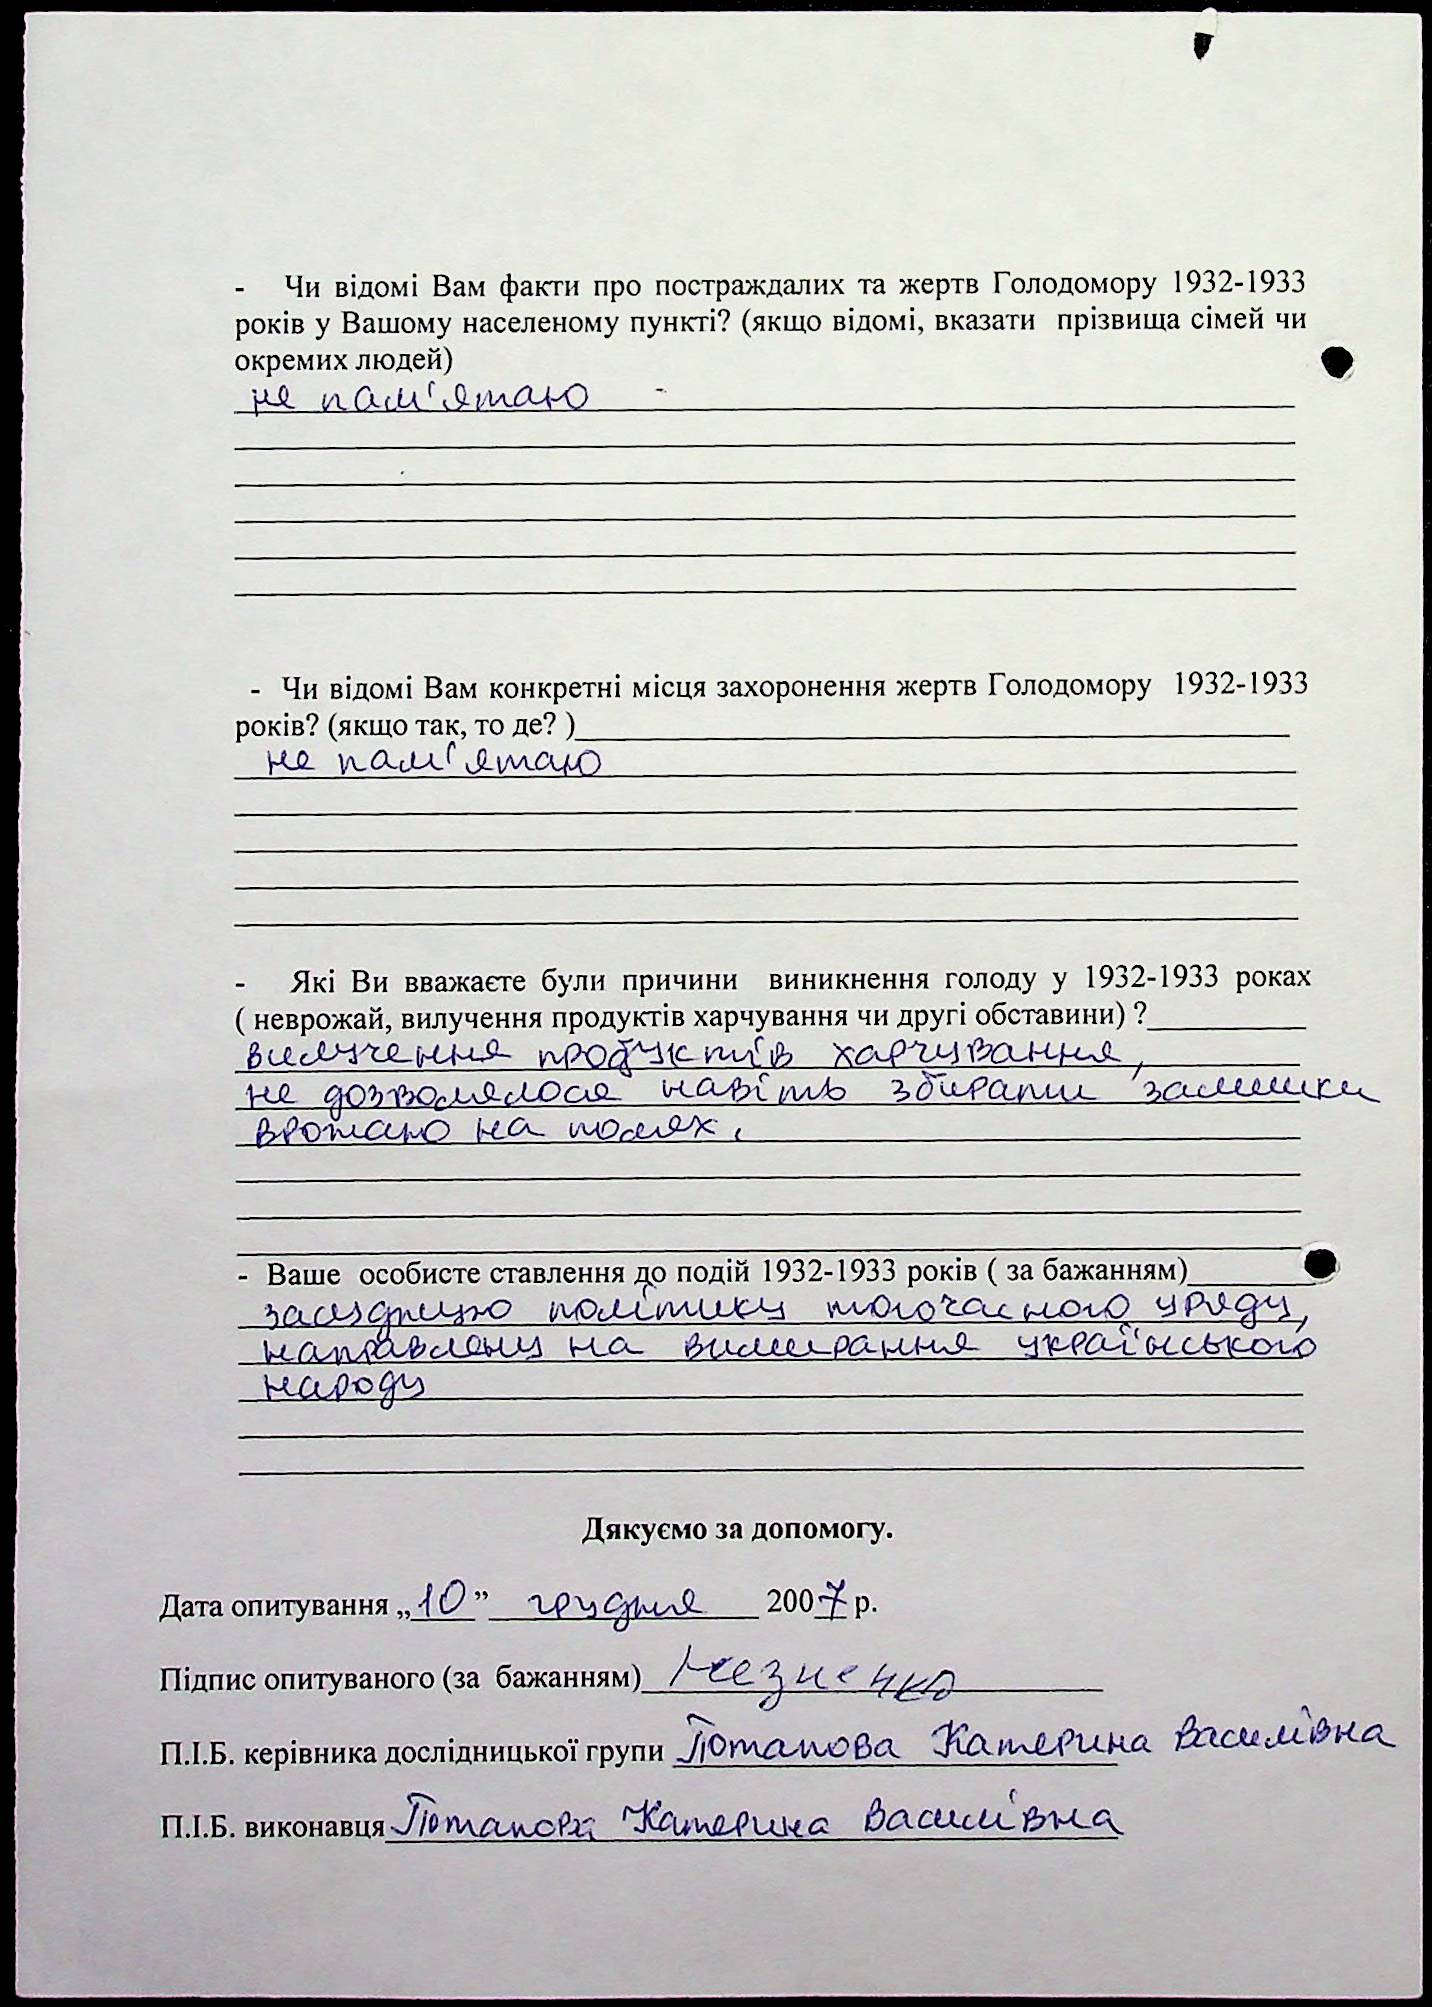 - Чи відомі Вам факти про постраждалих та жертв Голодомору 1932-1933
років у Вашому населеному пункті? (якщо відомі, вказати прізвища сімей чи
окремих людей)
не пам'ятаю
- Чи відомі Вам конкретні місця захоронення жертв Голодомору 1932-1933
років? (якщо так, то де? )
не пам'ятаю
- Які Ви вважаєте були причини виникнення голоду у 1932-1933 роках
( неврожай, вилучення продуктів харчування чи другі обставини) ?
вилучення продуктів харчування,
не дозволялося навіть збирати залишки
врожаю на полях.
- Ваше особисте ставлення до подій 1932-1933 років ( за бажанням)
засуджую політику тогочасного уряду,
направлену на вимирання українського
народу
Дякуємо за допомогу.
Дата опитування „10” грудня 2007 р.
Підпис опитуваного (за бажанням)
П.І.Б. керівника дослідницької групи Потапова Катерина Василівна
П.І.Б. виконавця Потапова Катерина Василівна